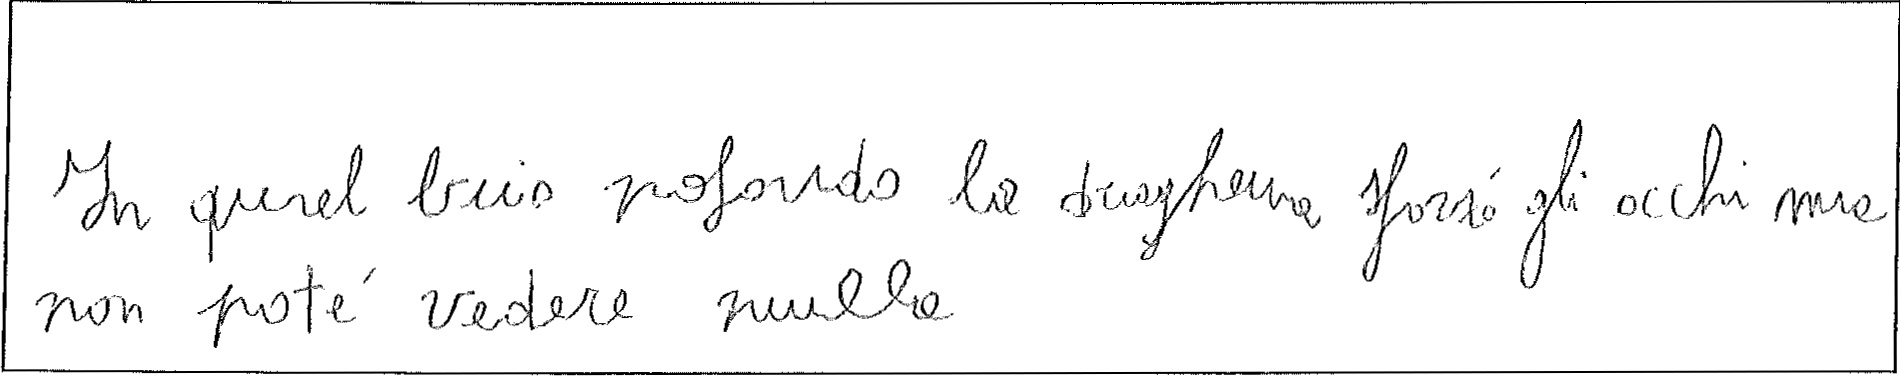 In quel buio pofondo la dragherna sforzó gli occhi ma
non poté vedere nulla